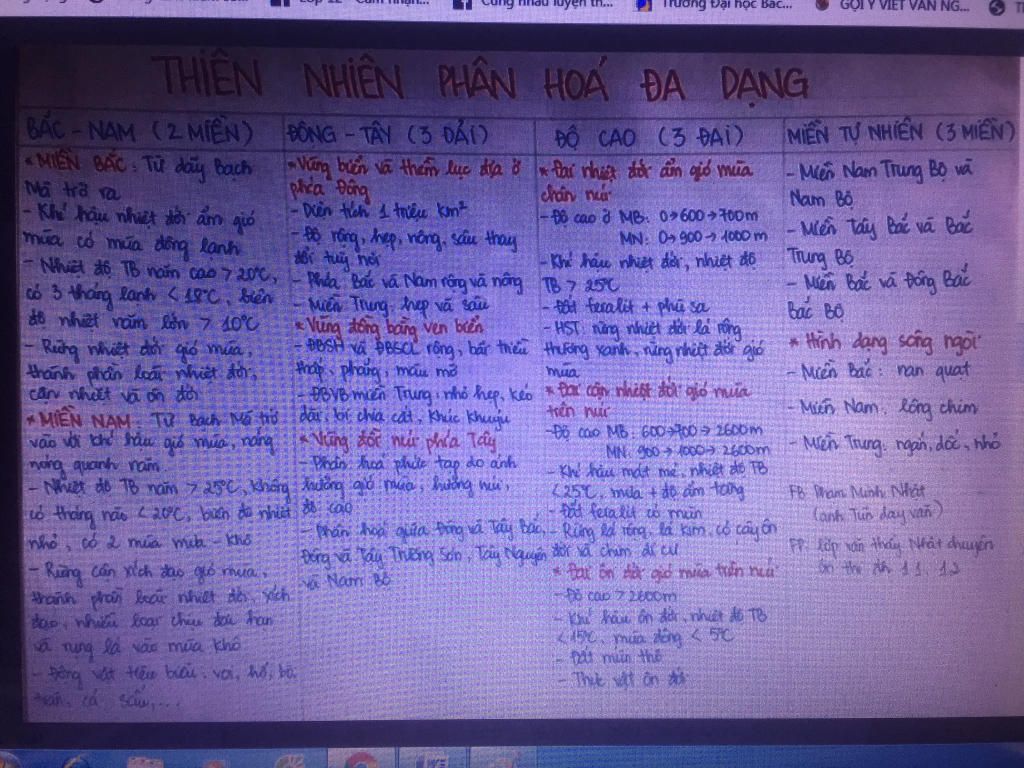 Trường Đại học Bắc...
GỢI Ý VIẾT VĂN NG...
THIÊN NHIÊN PHÂN HOÁ ĐA DẠNG
BẮC - NAM (2 MIỀN)
* MIỀN BẮC: Từ dãy Bạch
Mã trở ra
- Khí hậu nhiệt đới ẩm gió
mùa có mùa đông lạnh
- Nhiệt độ TB năm cao > 20°C,
có 3 tháng lạnh < 18°C, biên
độ nhiệt năm lớn > 10°C
- Rừng nhiệt đới gió mùa,
thành phần loài nhiệt đới,
cận nhiệt và ôn đới
* MIỀN NAM: Từ Bạch Mã trở
vào với khí hậu gió mùa, nóng
nóng quanh năm
- Nhiệt độ TB năm > 25°C, không
có tháng nào < 20°C, biên độ nhiệt
nhỏ, có 2 mùa mưa - khô
- Rừng cận xích đạo gió mùa,
thành phần loài nhiệt đới, xích
đạo, nhiều loại chịu hạn
và rụng lá vào mùa khô
- Động vật tiêu biểu: voi, hổ, bò
cá sấu,...
ĐÔNG - TÂY (3 DẢI)
* Vùng biển và thềm lục địa ở
phía Đông
- Diện tích 1 triệu km²
- Độ rộng, hẹp, nông, sâu thay
đổi tuỳ nơi
- Phía Bắc và Nam rộng và nông
- Miền Trung: hẹp và sâu
* Vùng đồng bằng ven biển
- ĐBSH và ĐBSCL rộng, bãi triều
thấp, phẳng, màu mỡ
- ĐBVB miền Trung: nhỏ hẹp, kéo
dài, bị chia cắt, khúc khuỷu
* Vùng đồi núi phía Tây
- Phân hoá phức tạp do ảnh
hưởng gió mùa, hướng núi,
độ cao
- Phân hoá giữa Đông và Tây Bắc,
Đông và Tây Trường Sơn, Tây Nguyên
và Nam Bộ
ĐỘ CAO (3 ĐAI)
* Đai nhiệt đới ẩm gió mùa
chân núi
- Độ cao ở MB: 0→600→700m
MN: 0→900→1000m
- Khí hậu nhiệt đới, nhiệt độ
TB > 25°C
- Đất feralit + phù sa
- HST: rừng nhiệt đới lá rộng
thường xanh, rừng nhiệt đới gió
mùa
* Đai cận nhiệt đới gió mùa
trên núi
- Độ cao MB: 600→700→2600m
MN: 900→1000→2600m
- Khí hậu mát mẻ, nhiệt độ TB
< 25°C, mưa + độ ẩm tăng
- Đất feralit có mùn
- Rừng lá rộng, lá kim, có cây ôn
đới và chim di cư
* Đai ôn đới gió mùa trên núi
- Độ cao > 2600m
- Khí hậu ôn đới, nhiệt độ TB
< 15°C, mùa đông < 5°C
- Đất mùn thô
- Thực vật ôn đới
MIỀN TỰ NHIÊN (3 MIỀN)
- Miền Nam Trung Bộ và
Nam Bộ
- Miền Tây Bắc và Bắc
Trung Bộ
- Miền Bắc và Đông Bắc
Bắc Bộ
* Hình dạng sông ngòi
- Miền Bắc: nan quạt
- Miền Nam: lông chim
- Miền Trung: ngắn, dốc, nhỏ
FB: Phạm Minh Nhật
(anh Tun dạy văn)
FP: lớp văn thầy Nhật chuyên
ôn thi đh 11, 12